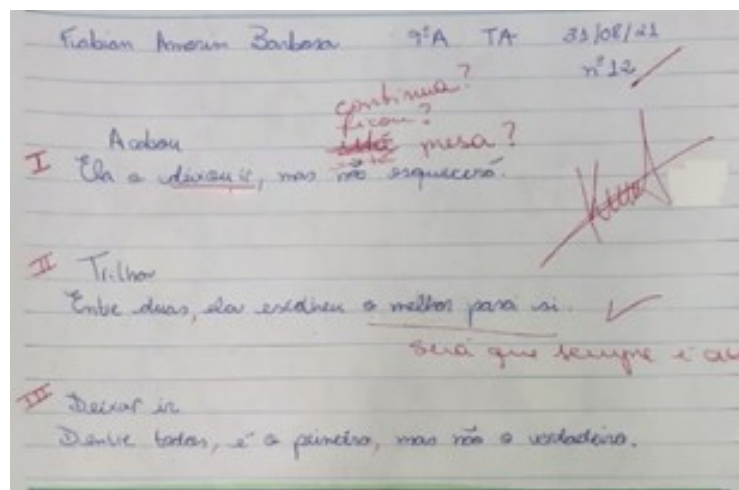 Fabian Amorim Barbosa 9ºA TA 31/08/21
nº 12
continua?
ficou?
está presa?
Acabou
I Ela o deixou ir, mas não esquecerá.
II Trilhar
Entre duas, ela escolheu a melhor para si.
Será que sempre é as
III Deixar ir
Dentre todos, é o primeiro, mas não o verdadeiro.